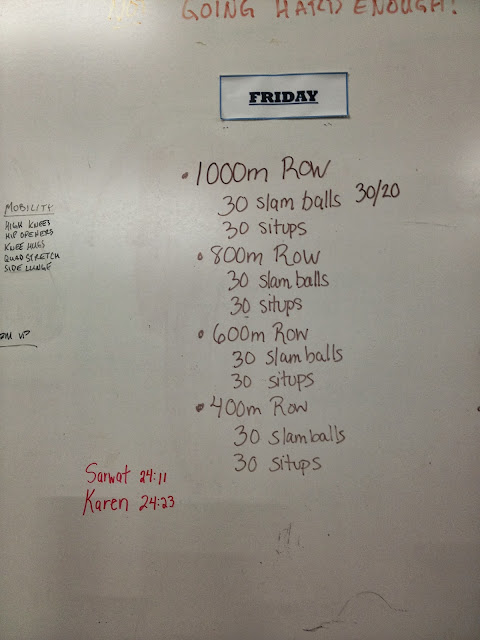 GOING HARD ENOUGH!
FRIDAY
• 1000m Row
30 slam balls 30/20
30 situps
• 800m Row
30 slam balls
30 situps
• 600m Row
30 slam balls
30 situps
• 400m Row
30 slam balls
30 situps
MOBILITY
HIGH KNEES
HIP OPENERS
KNEE HUGS
QUAD STRETCH
SIDE LUNGE
UP
Sarwat 24:11
Karen 24:23